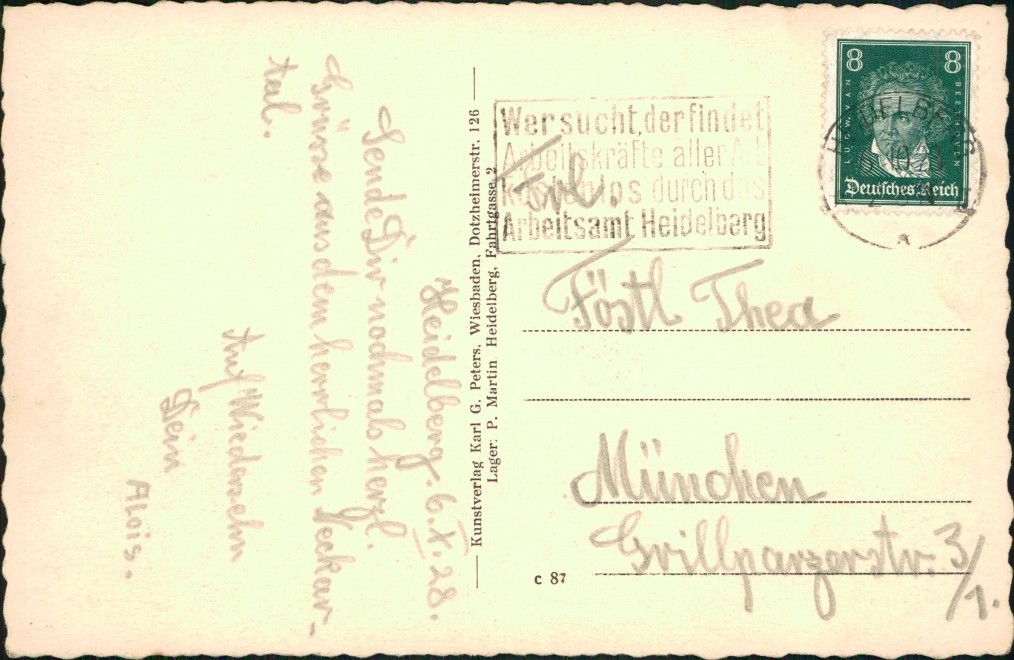 Heidelberg, 6.X.28.
Sende Dir nochmals herzl.
Grüsse aus dem herrlichen Neckar-
tal.
Auf Wiedersehn
Dein
Alois.
Kunstverlag Karl G. Peters, Wiesbaden, Dotzheimerstr. 126
Lager: P. Martin Heidelberg, Fahrtgasse 2
Wer sucht, der findet
Arbeitskräfte aller Art
kostenlos durch das
Arbeitsamt Heidelberg
8 8
LUDW. VAN BEETHOVEN
Deutsches Reich
HEIDELBERG
Frl.
Föstl Thea
München
Grillparzerstr. 3/1.
c 87